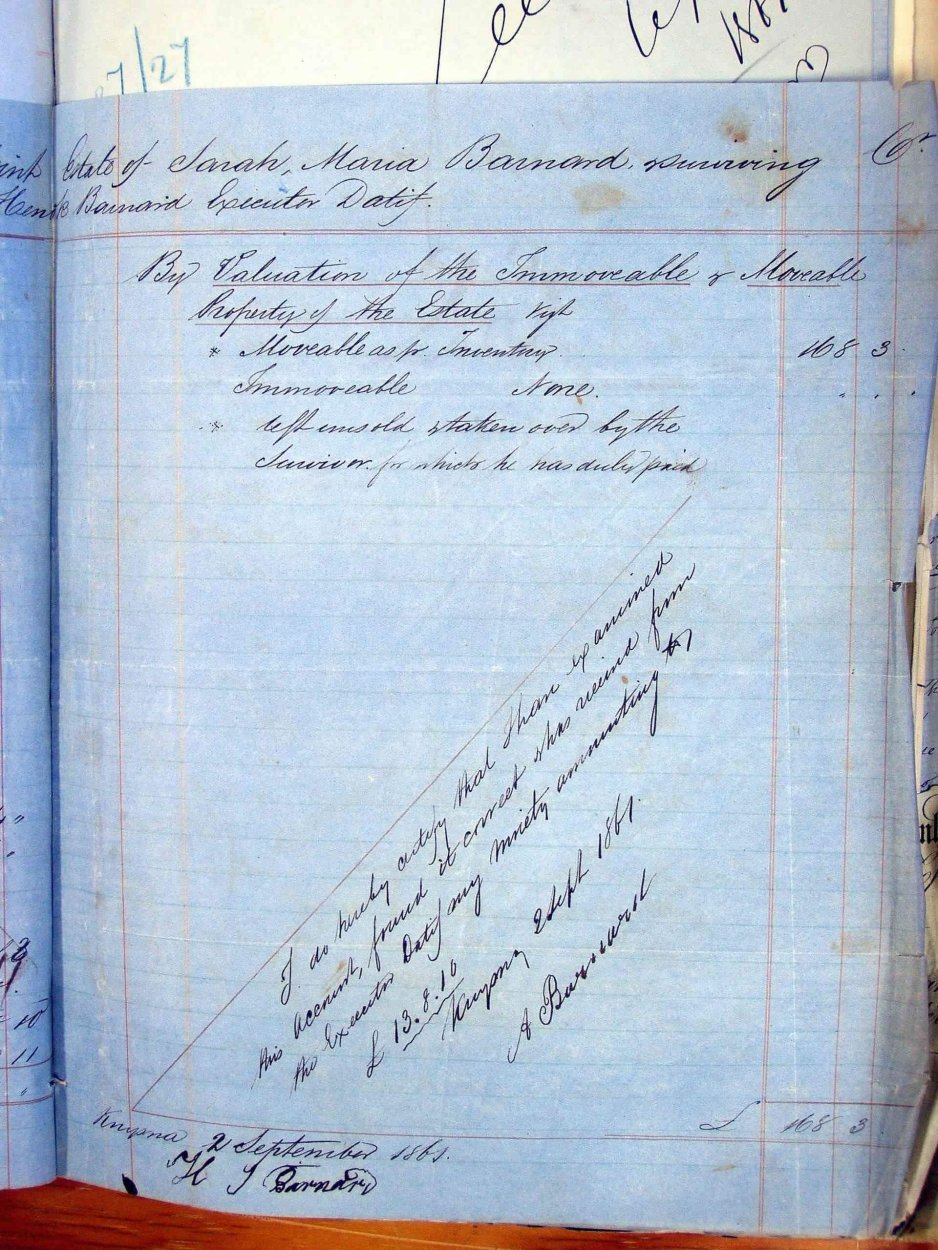 7/27
Estate of Sarah, Maria Barnard, surviving Cr
Barnard Executor Datif.
By Valuation of the Immoveable & Moveable
Property of the Estate Vizt
* Moveable as pr. Inventory. 168 3.
Immoveable None. . . .
* left unsold & taken over by the
Survivor. for which he has duly paid
I do hereby certify that I have examined
this account, found it correct & has receivd from
the Executor Datif my moiety amounting to
£ 13.8.10
Knysna 2 Sept 1861.
A Barnard
£ 168 3
Knysna 2 September 1861.
H J Barnard